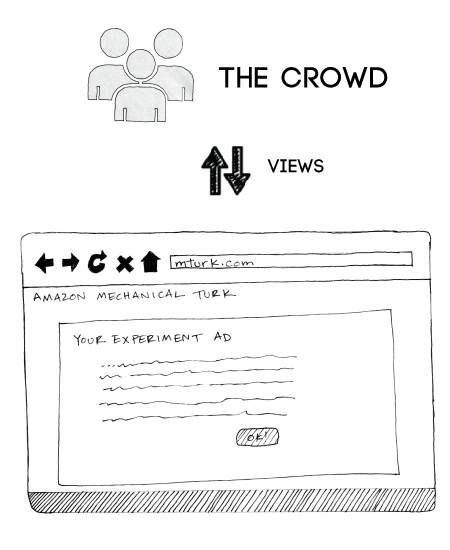 THE CROWD
VIEWS
mturk.com
AMAZON MECHANICAL TURK
YOUR EXPERIMENT AD
OK!